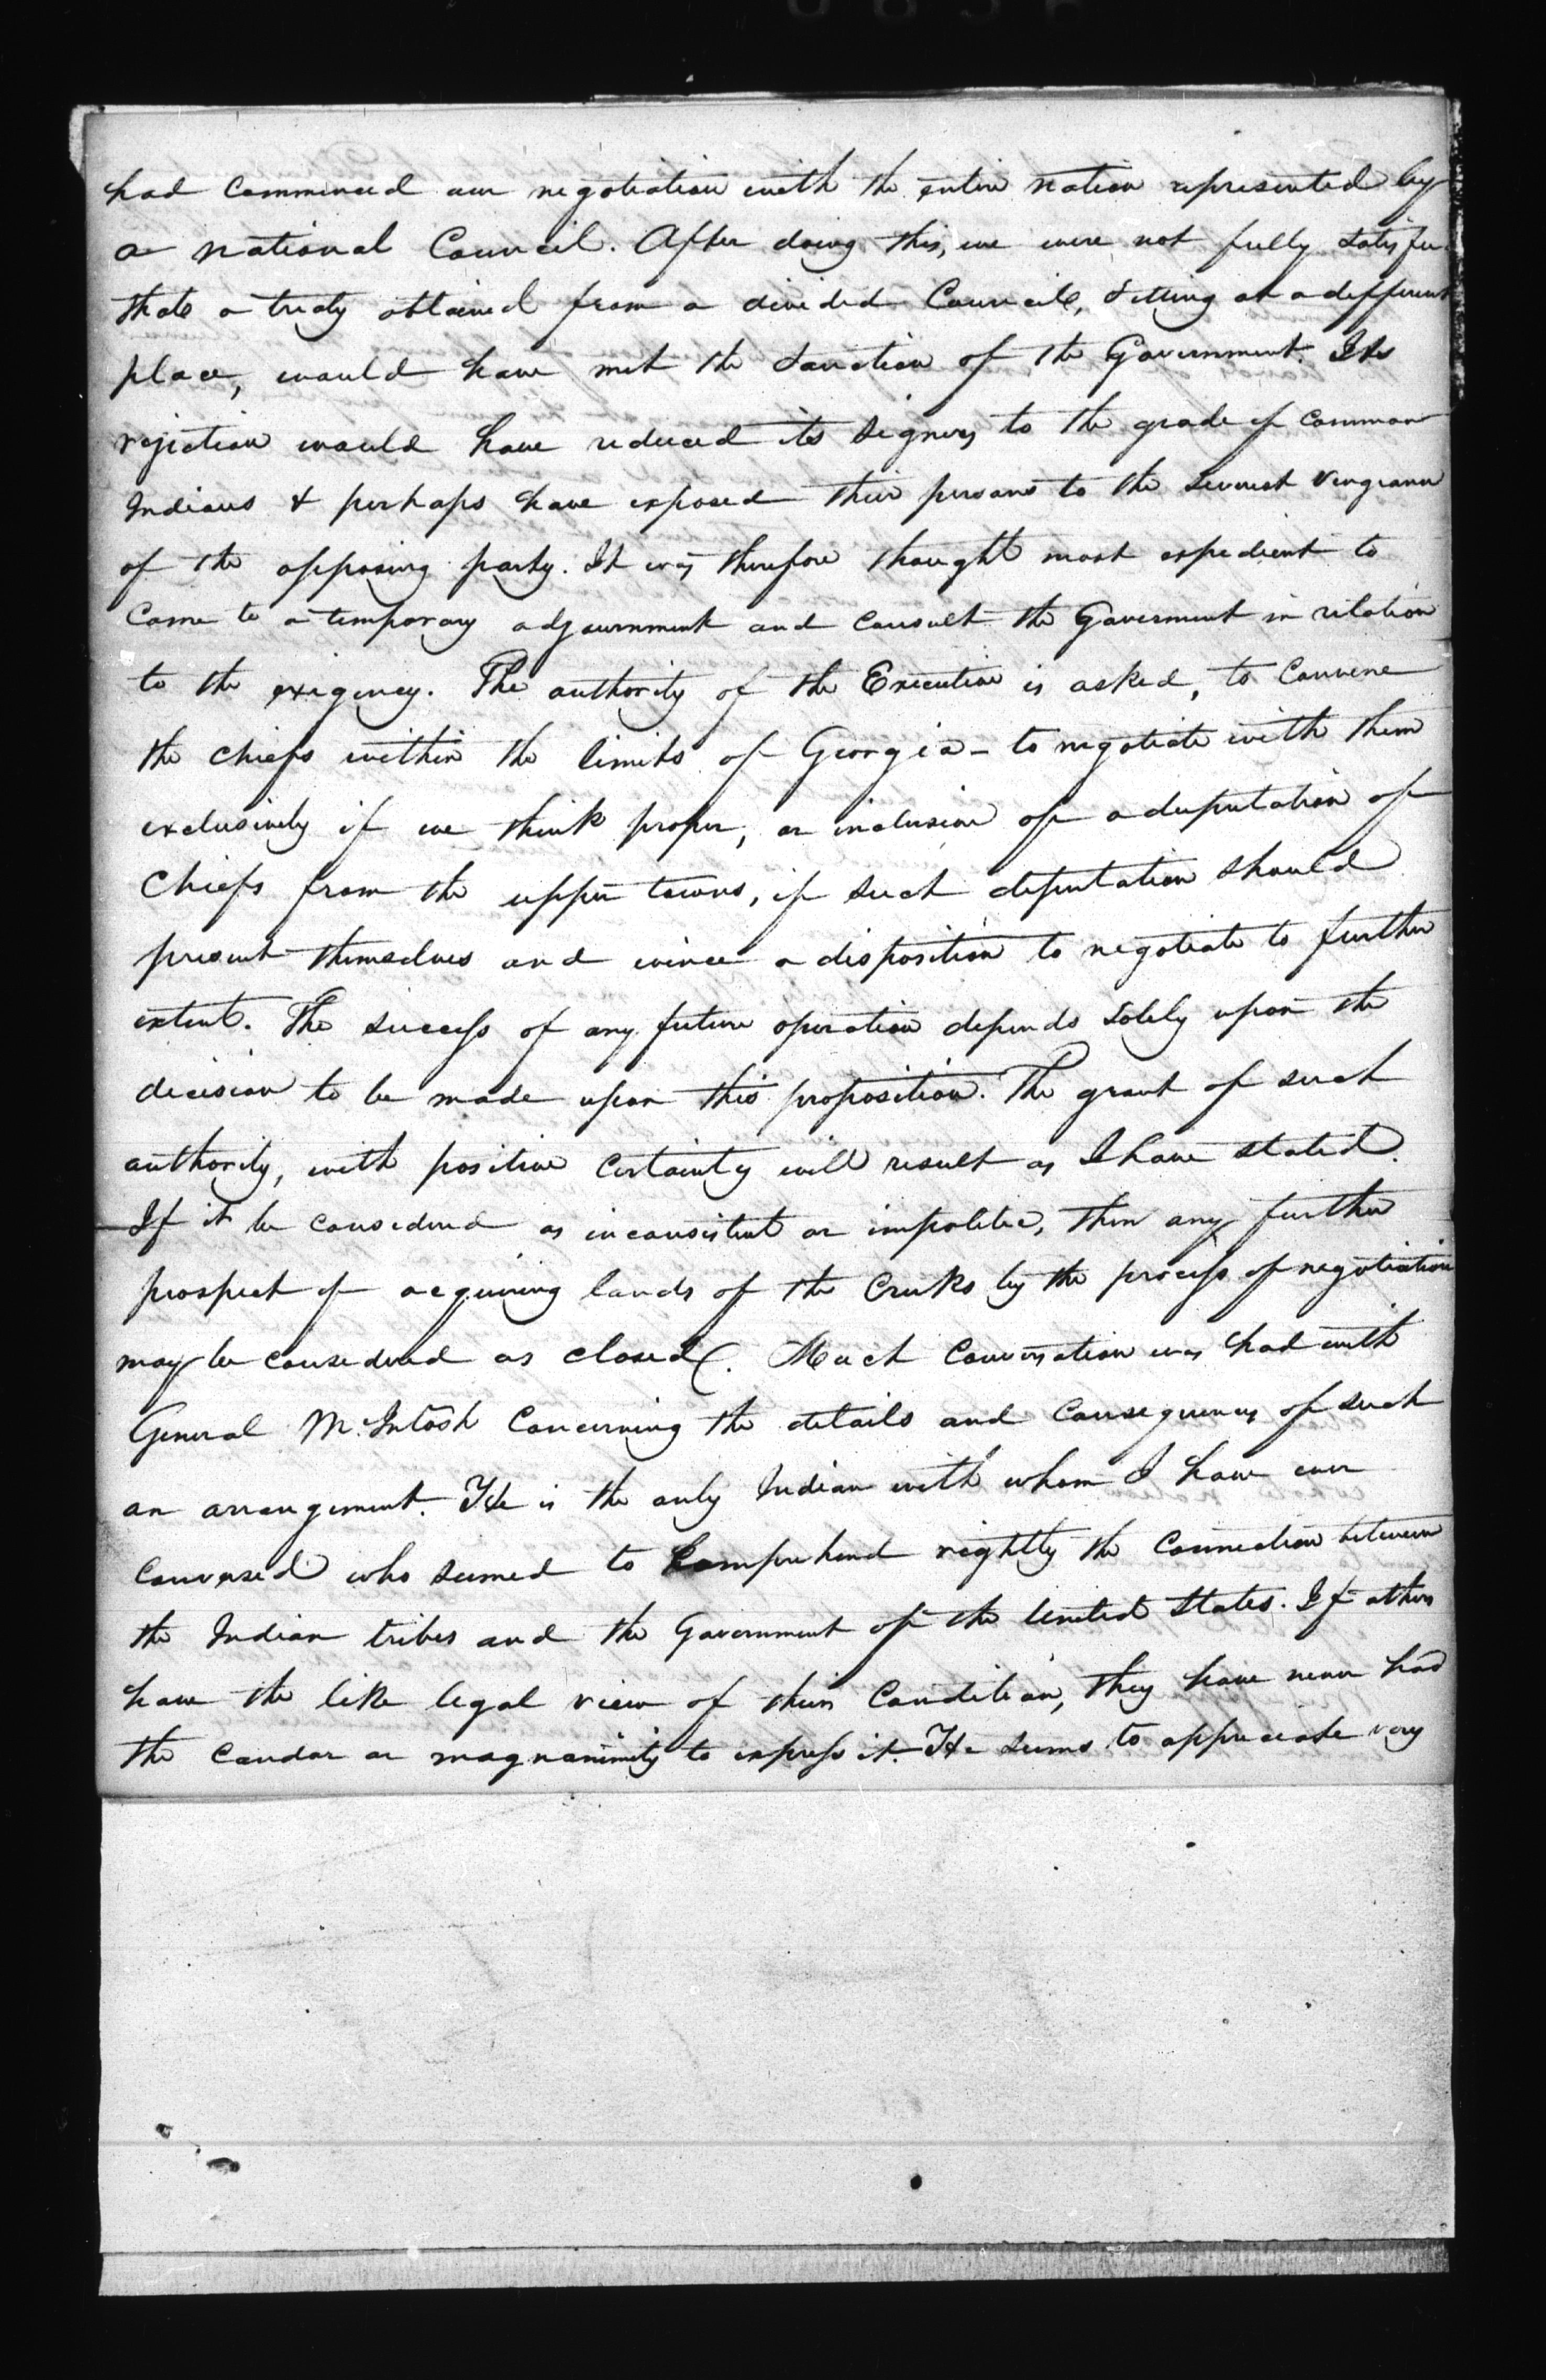 had commenced our negotiation with the entire nation represented by
a national Council. After doing this, we were not fully satisfied
that a treaty obtained from a divided Council, sitting at a different
place, would have met the sanction of the Government. Its
rejection would have reduced its signers to the grade of common
Indians & perhaps have exposed their persons to the severest vengeance
of the opposing party. It was therefore thought most expedient to
come to a temporary adjournment and consult the Goverment in relation
to the exigency. The authority of the Executive is asked, to convene
the chiefs within the limits of Georgia - to negotiate with them
exclusively if we think proper, or inclusive of a deputation of
Chiefs from the upper towns, if such deputation should
present themselves and evince a disposition to negotiate to further
extent. The success of any future operation depends solely upon the
decision to be made upon this proposition. The grant of such
authority, with positive certainty will result as I have stated.
If it be considered as inconsistent or impolitic, then any further
prospect of acquiring lands of the Creeks by the process of negotiation
may be considered as closed. Much conversation was had with
General McIntosh concerning the details and consequences of such
an arrangement. He is the only Indian with whom I have ever
conversed who seemed to comprehend rightly the connection between
the Indian tribes and the Government of the United States. If others
have the like legal view of their condition, they have never had
the candor or magnanimity to express it. He seems to appreciate very